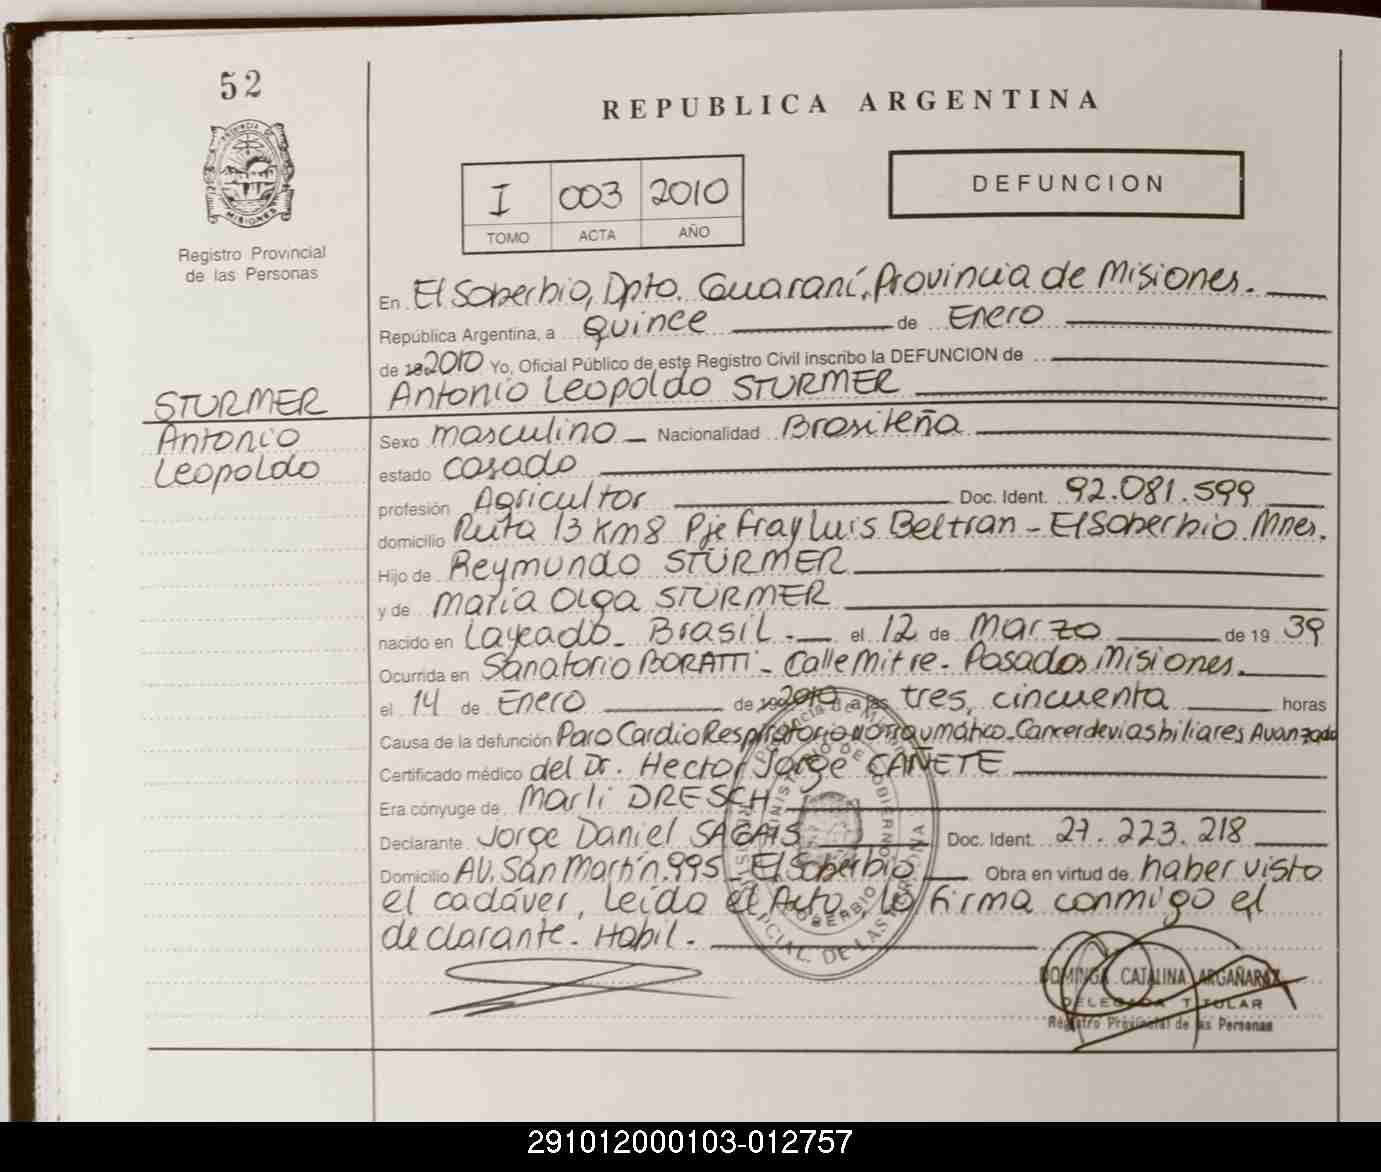 52
REPUBLICA ARGENTINA
PROVINCIA DE
MISIONES
Registro Provincial
de las Personas
I 003 2010
TOMO ACTA AÑO
DEFUNCION
En El Soberbio, Dpto. Guaraní, Provincia de Misiones.
República Argentina, a Quince de Enero
de 2010 Yo, Oficial Público de este Registro Civil inscribo la DEFUNCION de
STURMER
Antonio
Leopoldo
Antonio Leopoldo STURMER
Sexo masculino Nacionalidad Brasileña
estado casado
profesión Agricultor Doc. Ident. 92.081.599
domicilio Ruta 13 Km 8 Pje Fray Luis Beltran - El Soberbio. Mnes.
Hijo de Reymundo STÜRMER
y de María Olga STÜRMER
nacido en Layeado - Brasil. el 12 de Marzo de 19 39
Ocurrida en Sanatorio BORATTI - Calle Mitre - Posadas, Misiones.
el 14 de Enero de 2010 a las tres, cincuenta horas
Causa de la defunción Paro Cardio Respiratorio no Traumático. Cancer de vias biliares Avanzado
Certificado médico del Dr. Hector Jorge CAÑETE
Era cónyuge de Marli DRESCH
Declarante Jorge Daniel Doc. Ident. 27.223.218
Domicilio AV. San Martín 995, El Soberbio Obra en virtud de haber visto
el cadáver, leída el Acta, la firma conmigo el
declarante. Habil.
DOMINGA CATALINA ARGAÑARAZ
DELEGADA TITULAR
Registro Provincial de las Personas
291012000103-012757